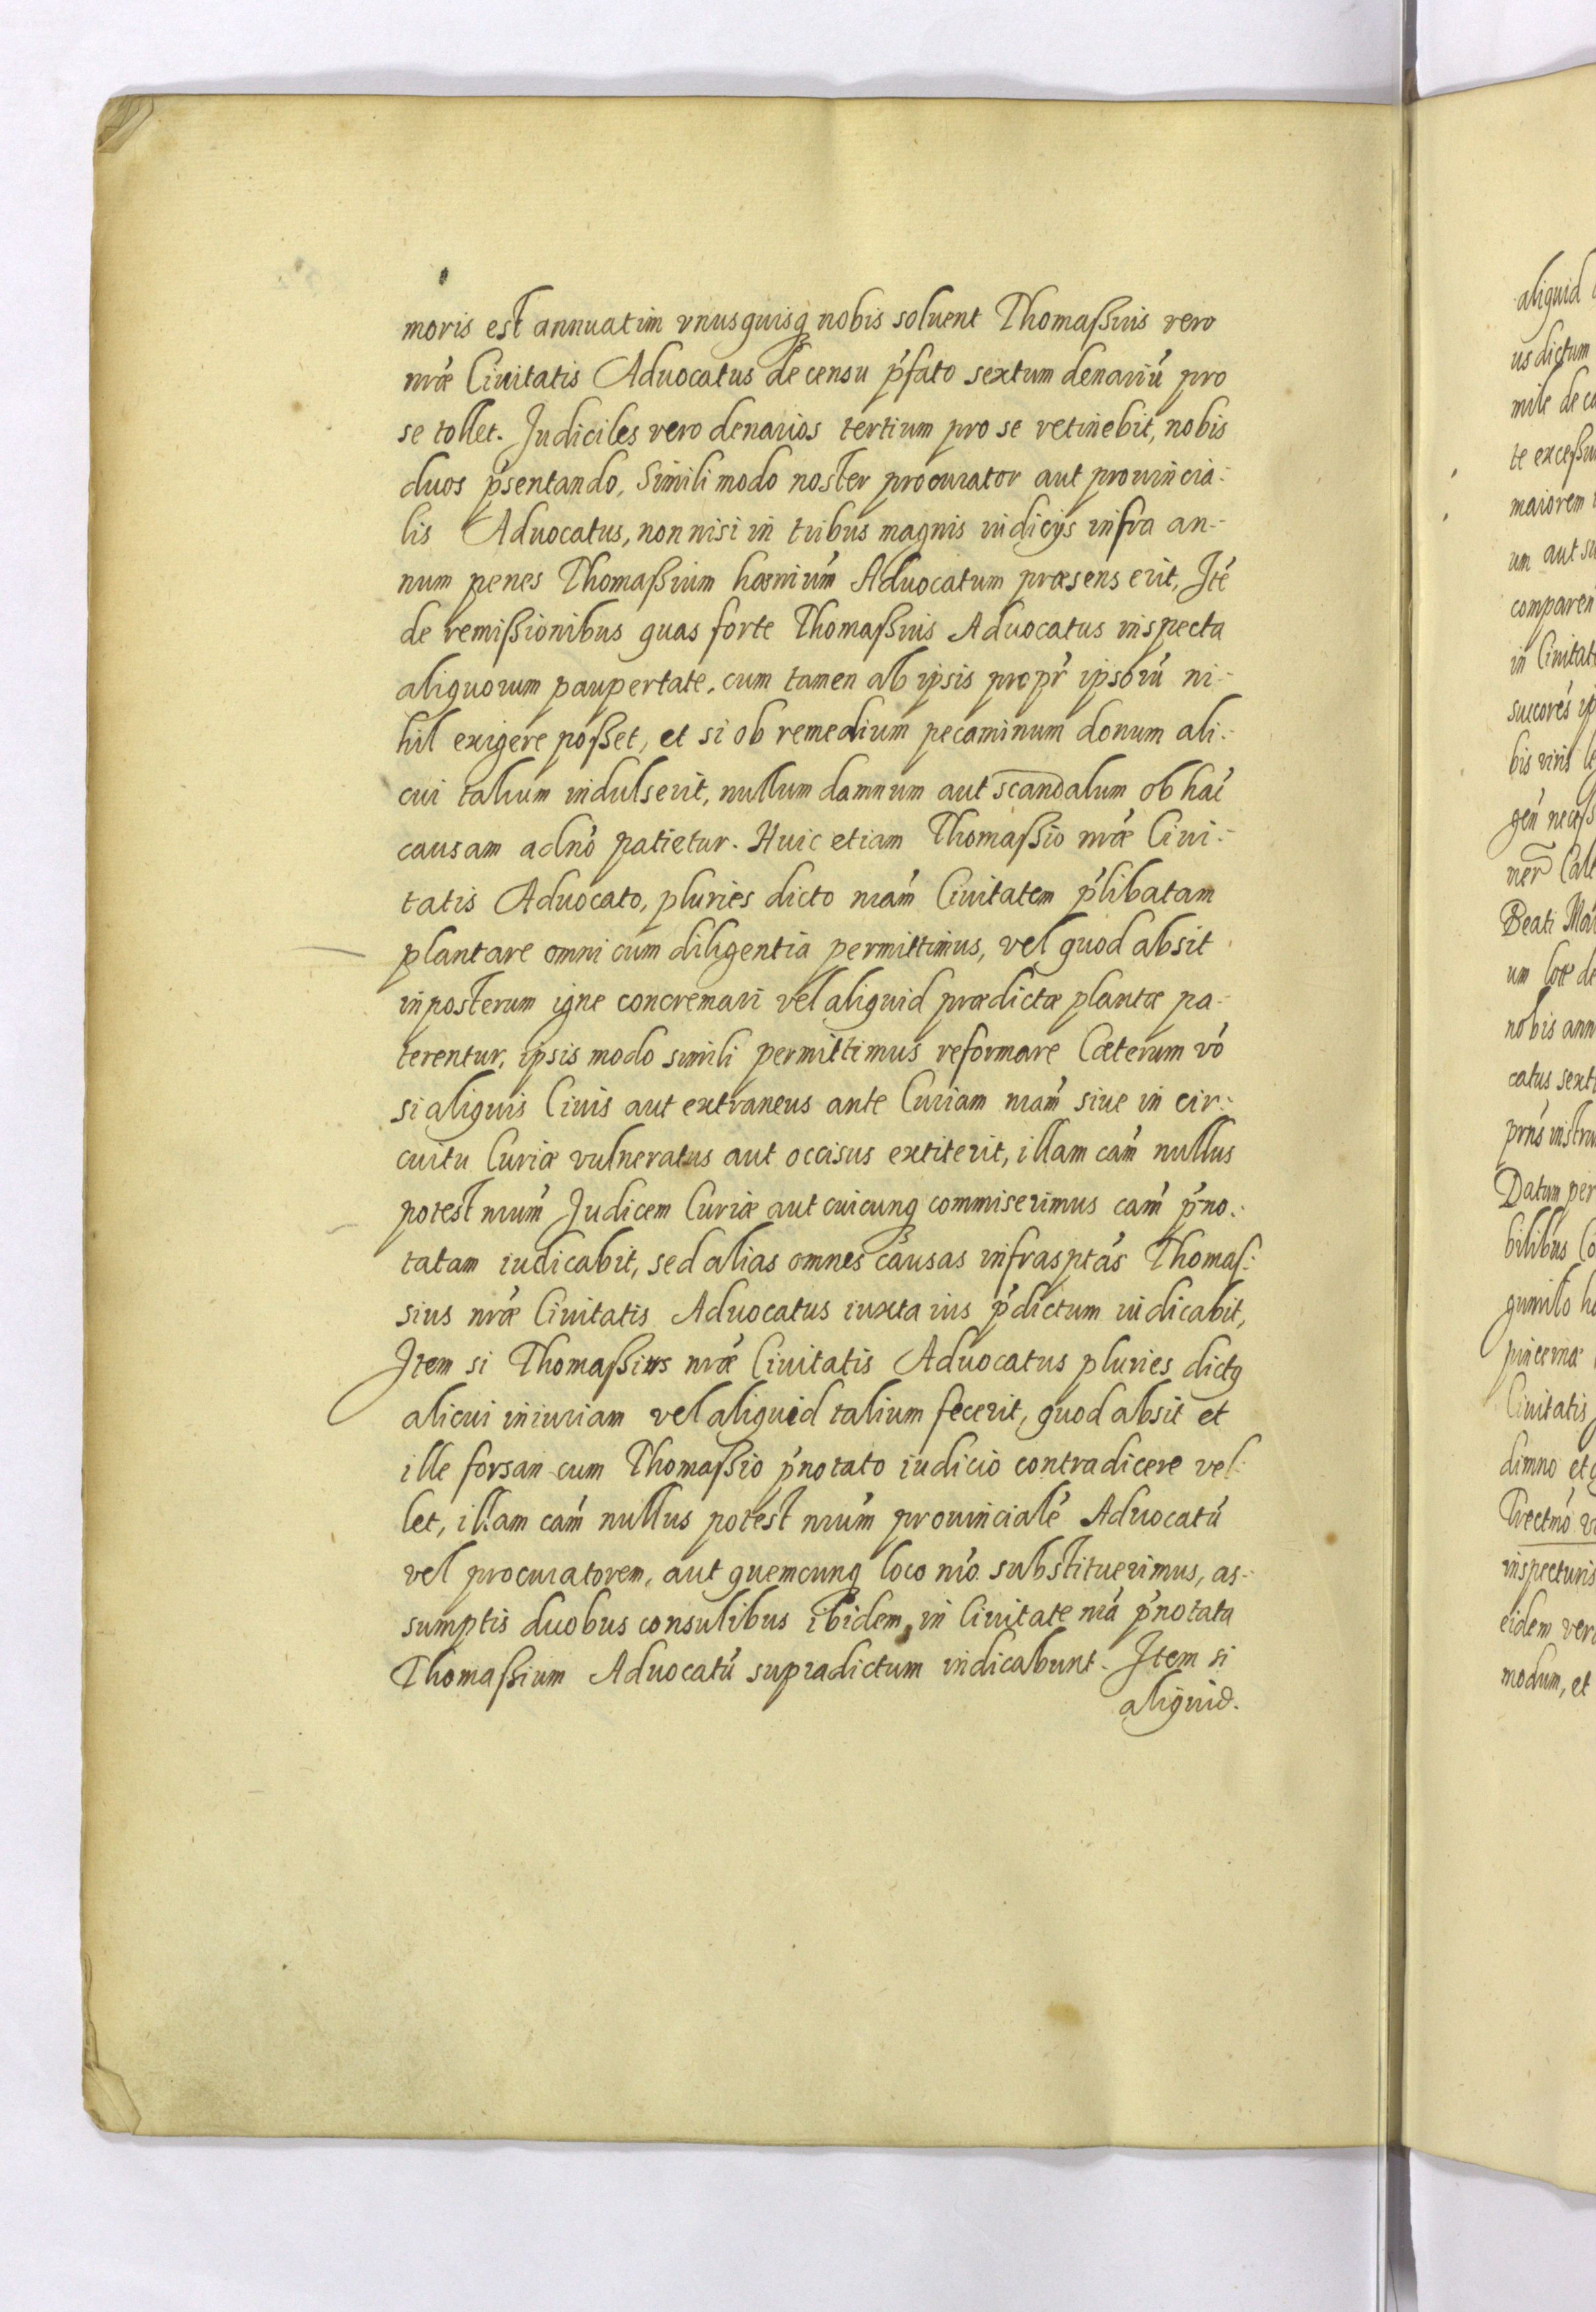 moris est annuatim vnusquisq nobis soluent Thomaßius vero
nr̃æ Ciuitatis Aduocatus de censu p̃fato sextum denariũ pro
se tollet. Judiciles vero denarios tertium pro se retinebit, nobis
duos p̃sentando, Simili modo noster procurator aut prouincia-
lis Aduocatus, non nisi in tribus magnis iudicijs infra an-
num penes Thomaßium hæniũm Aduocatum præsens erit, Itẽ
de remißionibus quas forte Thomaßius Aduocatus inspecta
aliquorum paupertate, cum tamen ab ipsis propr̃ ipsorũ ni-
hil exigere poßet, et si ob remedium pecaminum donum ali-
cui talium indulserit, nullum damnum aut scandalum ob hãc
causam a dnõ patietur. Huic etiam Thomaßio nr̃æ Ciui-
tatis Aduocato, pluries dicto nr̃am Ciuitatem p̃libatam
plantare omni cum diligentia permittimus, vel quod absit
in posterum igne concremari vel aliquid prædictæ plantæ pa-
terentur, ipsis modo simili permittimus reformare Cæterum võ
si aliquis Ciuis aut extraneus ante Curiam nr̃am siue in cir-
cuitu Curiæ vulneratus aut occisus extiterit, illam cam̃ nullus
potest nr̃um Judicem Curiæ aut cuicunq commiserimus cam̃ p̃no-
tatam iudicabit, sed alias omnes causas infrasptãs Thomas-
sius nr̃æ Ciuitatis Aduocatus iuxta ius p̃dictum iudicabit,
Item si Thomaßius nr̃æ Ciuitatis Aduocatus pluries dictq
alicui iniuriam vel aliquid talium fecerit, quod absit et
ille forsan cum Thomaßio p̃notato iudicio contradicere vel-
let, illam cam̃ nullus potest nr̃um prouincialẽ Aduocatũ
vel procuratorem, aut quemcunq loco nr̃o substituerimus, as-
sumptis duobus consulibus ibidem, in Ciuitate nr̃a p̃notata
Thomaßium Aduocatũ supradictum iudicabunt. Item si
aliquid.
aliquid
us dictum
mile de
te
maiorem
um aut
comparen
in Ciuitat
bis viris
Beati
um
nobis ann
catus sext
Datum per
bilibus
pincernæ
Ciuitatis
inspecturis
eidem
modum, et